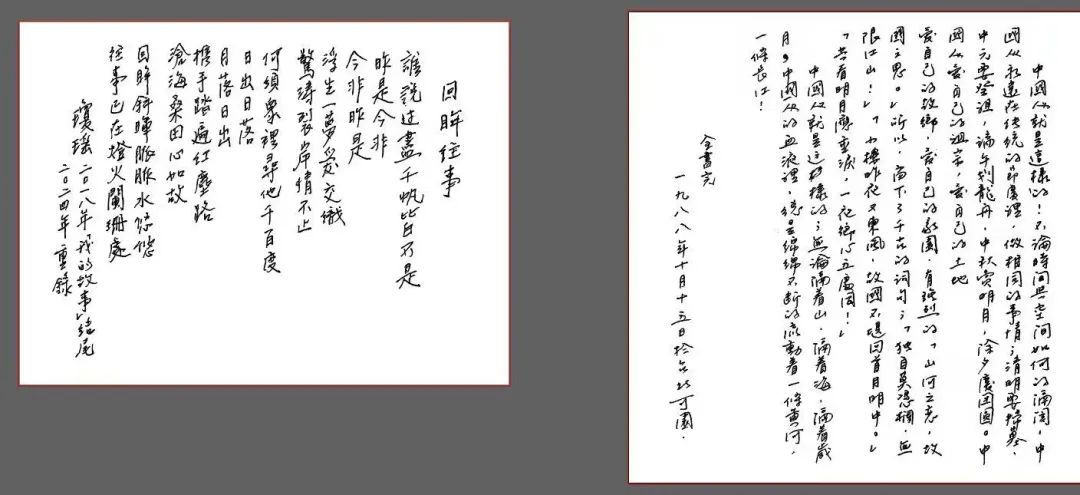 回眸往事
誰說過盡千帆皆不是
昨是今非
今非昨是
浮生一夢愛交織
驚濤裂岸情不止
何須衆裡尋他千百度
日出日落
月落日出
攜手踏遍紅塵路
滄海桑田心如故
回眸斜暉脈脈水悠悠
往事已在燈火闌珊處
瓊瑤 二〇一八年我的故事結尾
二〇二四年重錄
中國人就是這樣的!不論時間與空間如何的隔閡,中
國人永遠在傳統的節慶裡,做相同的事情;清明要掃墓,
中元要祭祖,端午划龍舟,中秋賞明月,除夕慶團圓。中
國人愛自己的祖宗,愛自己的土地
愛自己的故鄉,愛自己的家園,有強烈的「山河之戀,故
國之思。」所以,留下了千古的詞句;「獨自莫憑欄,無
限江山!」「小樓昨夜又東風,故國不堪回首月明中。」
「共看明月應垂淚,一夜鄉心五處同!」
中國人就是這樣的;無論隔着山,隔着海,隔着歲
月,中國人的血液裡,總是綿綿不斷的流動着一條黃河,
一條長江!
全書完
一九八八年十月十五日於台北可園.